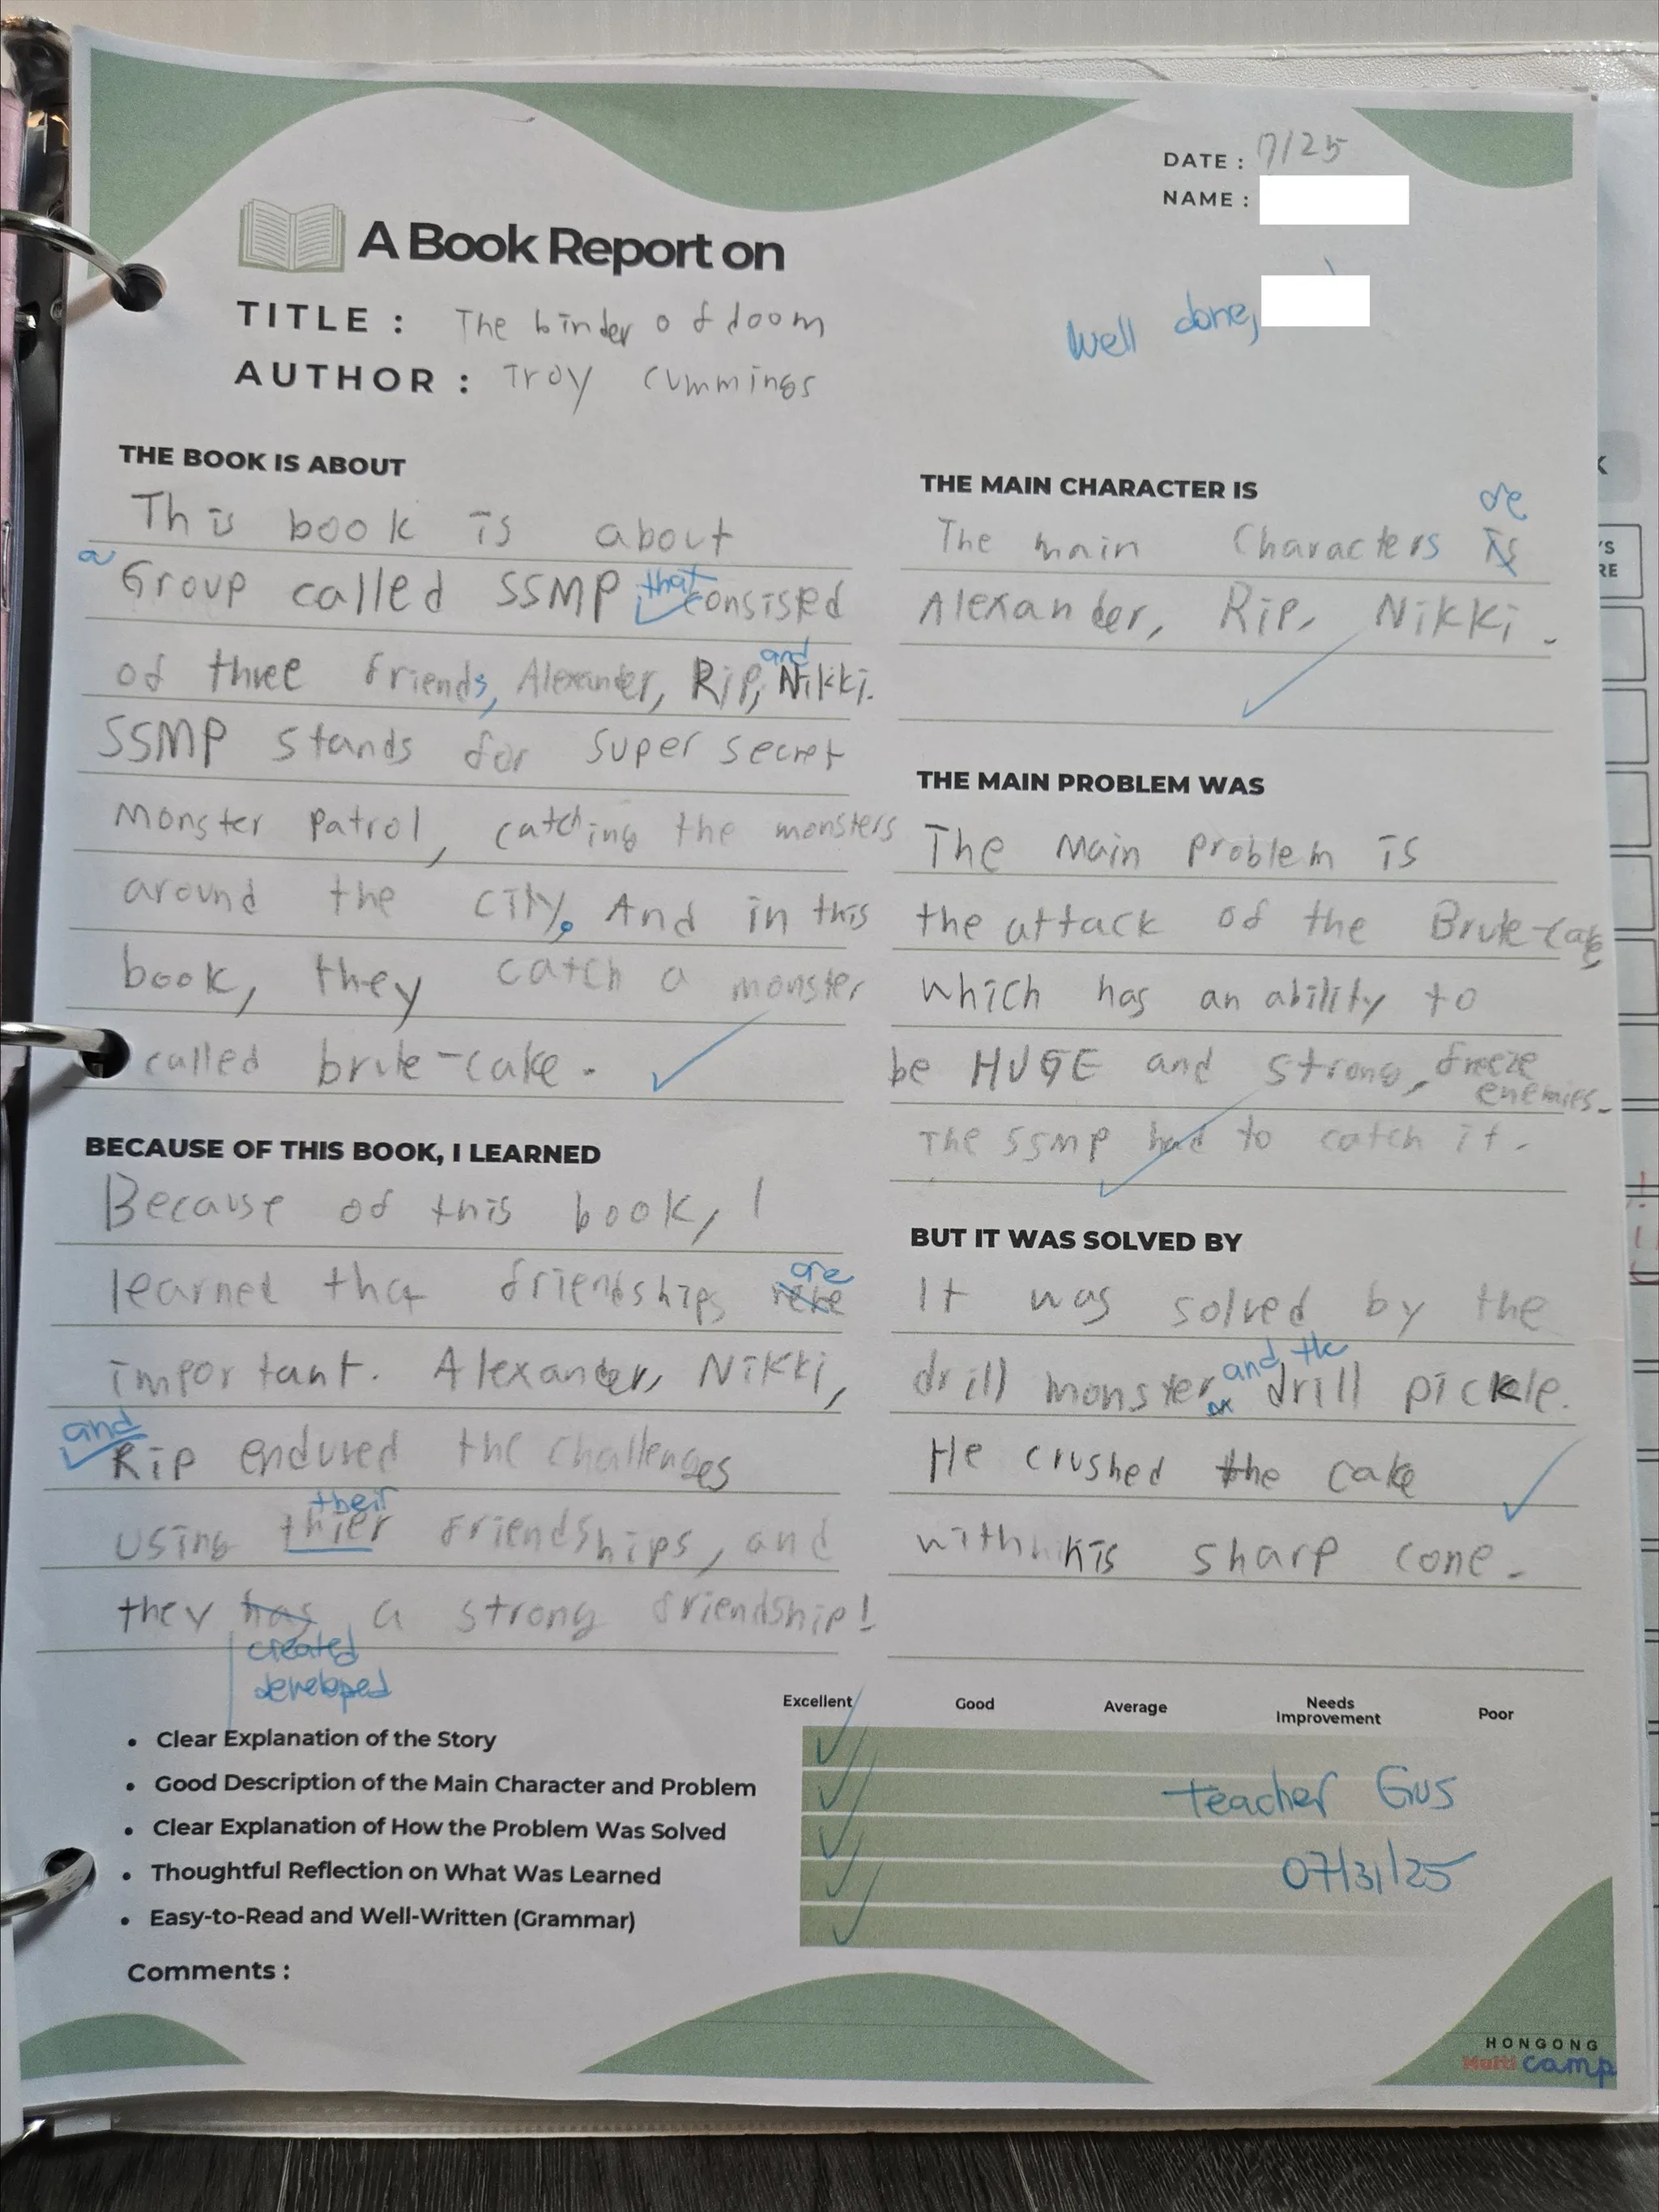 DATE : 7/25
NAME :
A Book Report on
Well done,
TITLE : The binder of doom
AUTHOR : Troy Cummings
THE BOOK IS ABOUT
This book is about
a Group called SSMP that consisted
of three friends, Alexander, Rip, and Nikki.
SSMP stands for super secret
Monster Patrol, catching the monsters
around the city. And in this
book, they catch a monster
called brute-cake.
BECAUSE OF THIS BOOK, I LEARNED
Because of this book, I
learned that friendships are
important. Alexander, Nikki,
and Rip endured the challenges
their
using thier friendships, and
they has a strong friendship!
created
developed
THE MAIN CHARACTER IS
are
The main Characters is
Alexander, Rip, Nikki.
THE MAIN PROBLEM WAS
The Main Problem is
the attack of the Brute-cake,
which has an ability to
be HUGE and strong, freeze
enemies.
The SSMP had to catch it.
BUT IT WAS SOLVED BY
It was solved by the
and the
drill monster drill pickle.
He crushed the cake
with his sharp cone.
Excellent Good Average Needs Improvement Poor
• Clear Explanation of the Story
• Good Description of the Main Character and Problem
• Clear Explanation of How the Problem Was Solved
• Thoughtful Reflection on What Was Learned
• Easy-to-Read and Well-Written (Grammar)
Teacher Gus
07/31/25
Comments :
HONGONG
Multi camp